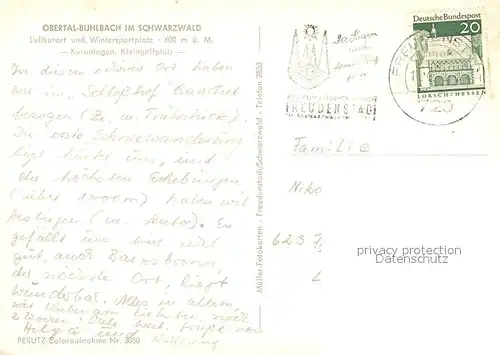 OBERTAL-BUHLBACH IM SCHWARZWALD
Luftkurort und Wintersportplatz - 600 m ü. M.
— Kuranlagen, Kleingolfplatz —
In diesem schönen Ort haben
wir im „Schloßhof" Quartier
bezogen (Zi. m. Frühstück).
Die erste Schwarzwanderung
liegt hinter uns, und
die höchsten Erhebungen
(über 1000m) haben wir
bestiegen (m. Auto). Es
gefällt uns hier sehr
gut, auch Baiersbronn,
der nächste Ort, liegt
wunderbar. Alles in allem,
wir bleiben am liebsten noch
Viele Grüße von
Helga und Wolfgang
PERUTZ-Coloraufnahme Nr. 3050
Müller-Fotokarten - Freudenstadt/Schwarzwald - Telefon 2833
FREUDENSTADT
Deutsche Bundespost
20
LORSCH/HESSEN
FREUDENST
720
Familie
Niko
623
L
privacy protection